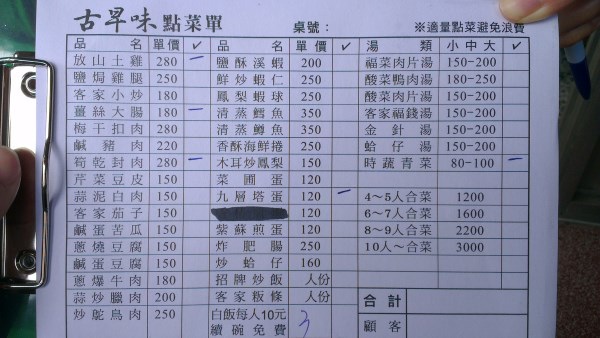 古早味 點菜單 桌號： ※適量點菜避免浪費
品名 單價 ✓ 品名 單價 ✓ 湯類 小中大 ✓
放山土雞 280 — 鹽酥溪蝦 200 福菜肉片湯 150-200
鹽焗雞腿 250 鮮炒蝦仁 250 酸菜鴨肉湯 180-250
客家小炒 180 鳳梨蝦球 250 酸菜肉片湯 150-200
薑絲大腸 180 — 清蒸鱈魚 350 客家福錢湯 150-200
梅干扣肉 280 清蒸鱒魚 350 金針湯 150-200
鹹豬肉 220 香酥海鮮捲 250 蛤仔湯 150-200
筍乾封肉 280 — 木耳炒鳳梨 150 時蔬青菜 80-100 —
芹菜豆皮 150 菜圃蛋 120
蒜泥白肉 150 九層塔蛋 120 — 4～5人合菜 1200
客家茄子 150 120 6～7人合菜 1600
鹹蛋苦瓜 150 紫蘇煎蛋 120 8～9人合菜 2200
蔥燒豆腐 150 炸肥腸 250 10人～合菜 3000
鹹蛋豆腐 150 炒蛤仔 160
蔥爆牛肉 180 招牌炒飯 人份
蒜炒臘肉 200 客家粄條 人份 合計
炒鴕鳥肉 250 白飯每人10元 3
續碗免費 顧客